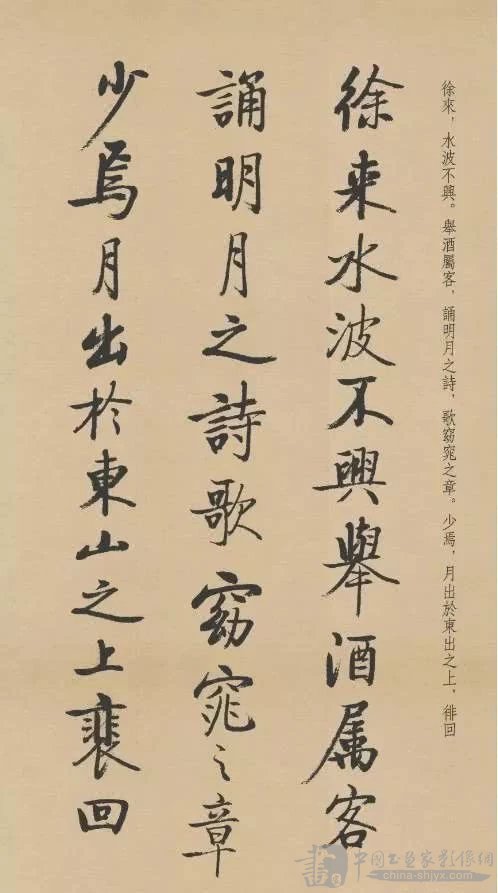 徐來，水波不興。舉酒屬客，誦明月之詩，歌窈窕之章。少焉，月出於東出之上，徘回
徐来水波不興舉酒属客
誦明月之詩歌窈窕之章
少焉月出於東山之上裴回
中国书画家影像网
china-shjyx.com